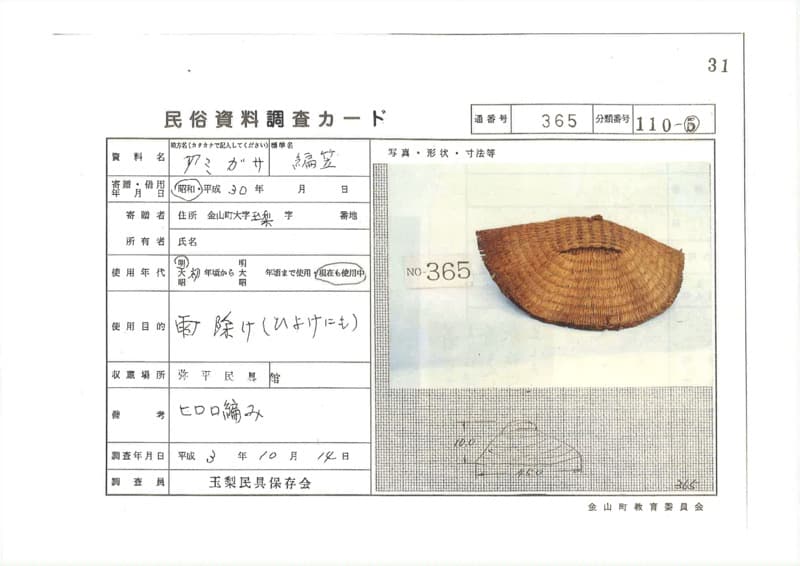 31
民俗資料調査カード
通番号 365 分類番号 110-⑤
資料名 地方名(カタカナで記入してください) アミガサ 標準名 編笠
写真・形状・寸法等
寄贈・借用年月日 昭和・平成 30年 月 日
寄贈者 住所 金山町大字玉梨 字 番地
所有者 氏名
使用年代 明大昭 初年頃から 明大昭 年頃まで使用・現在も使用中
NO-365
使用目的 雨除け(ひよけにも)
収蔵場所 弥平民具館
備考 ヒロロ編み
10.0
45.0
調査年月日 平成 3年 10月 14日
365
調査員 玉梨民具保存会
金山町教育委員会